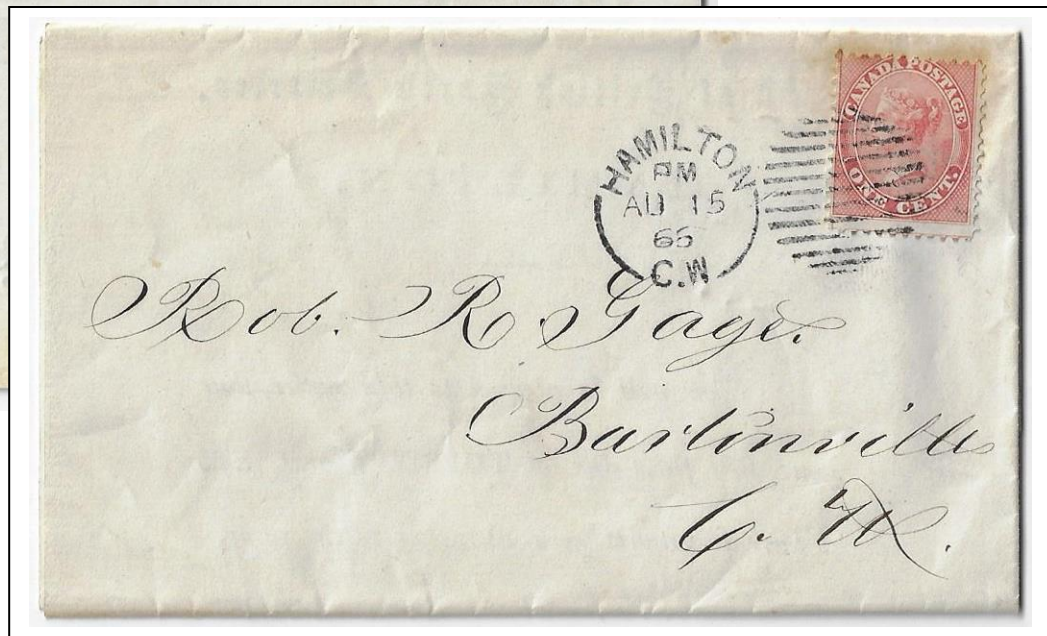 CANADA POSTAGE
ONE CENT.
HAMILTON
PM
AU 15
66
C.W
Rob. R. Gage.
Bartonville
C. W.